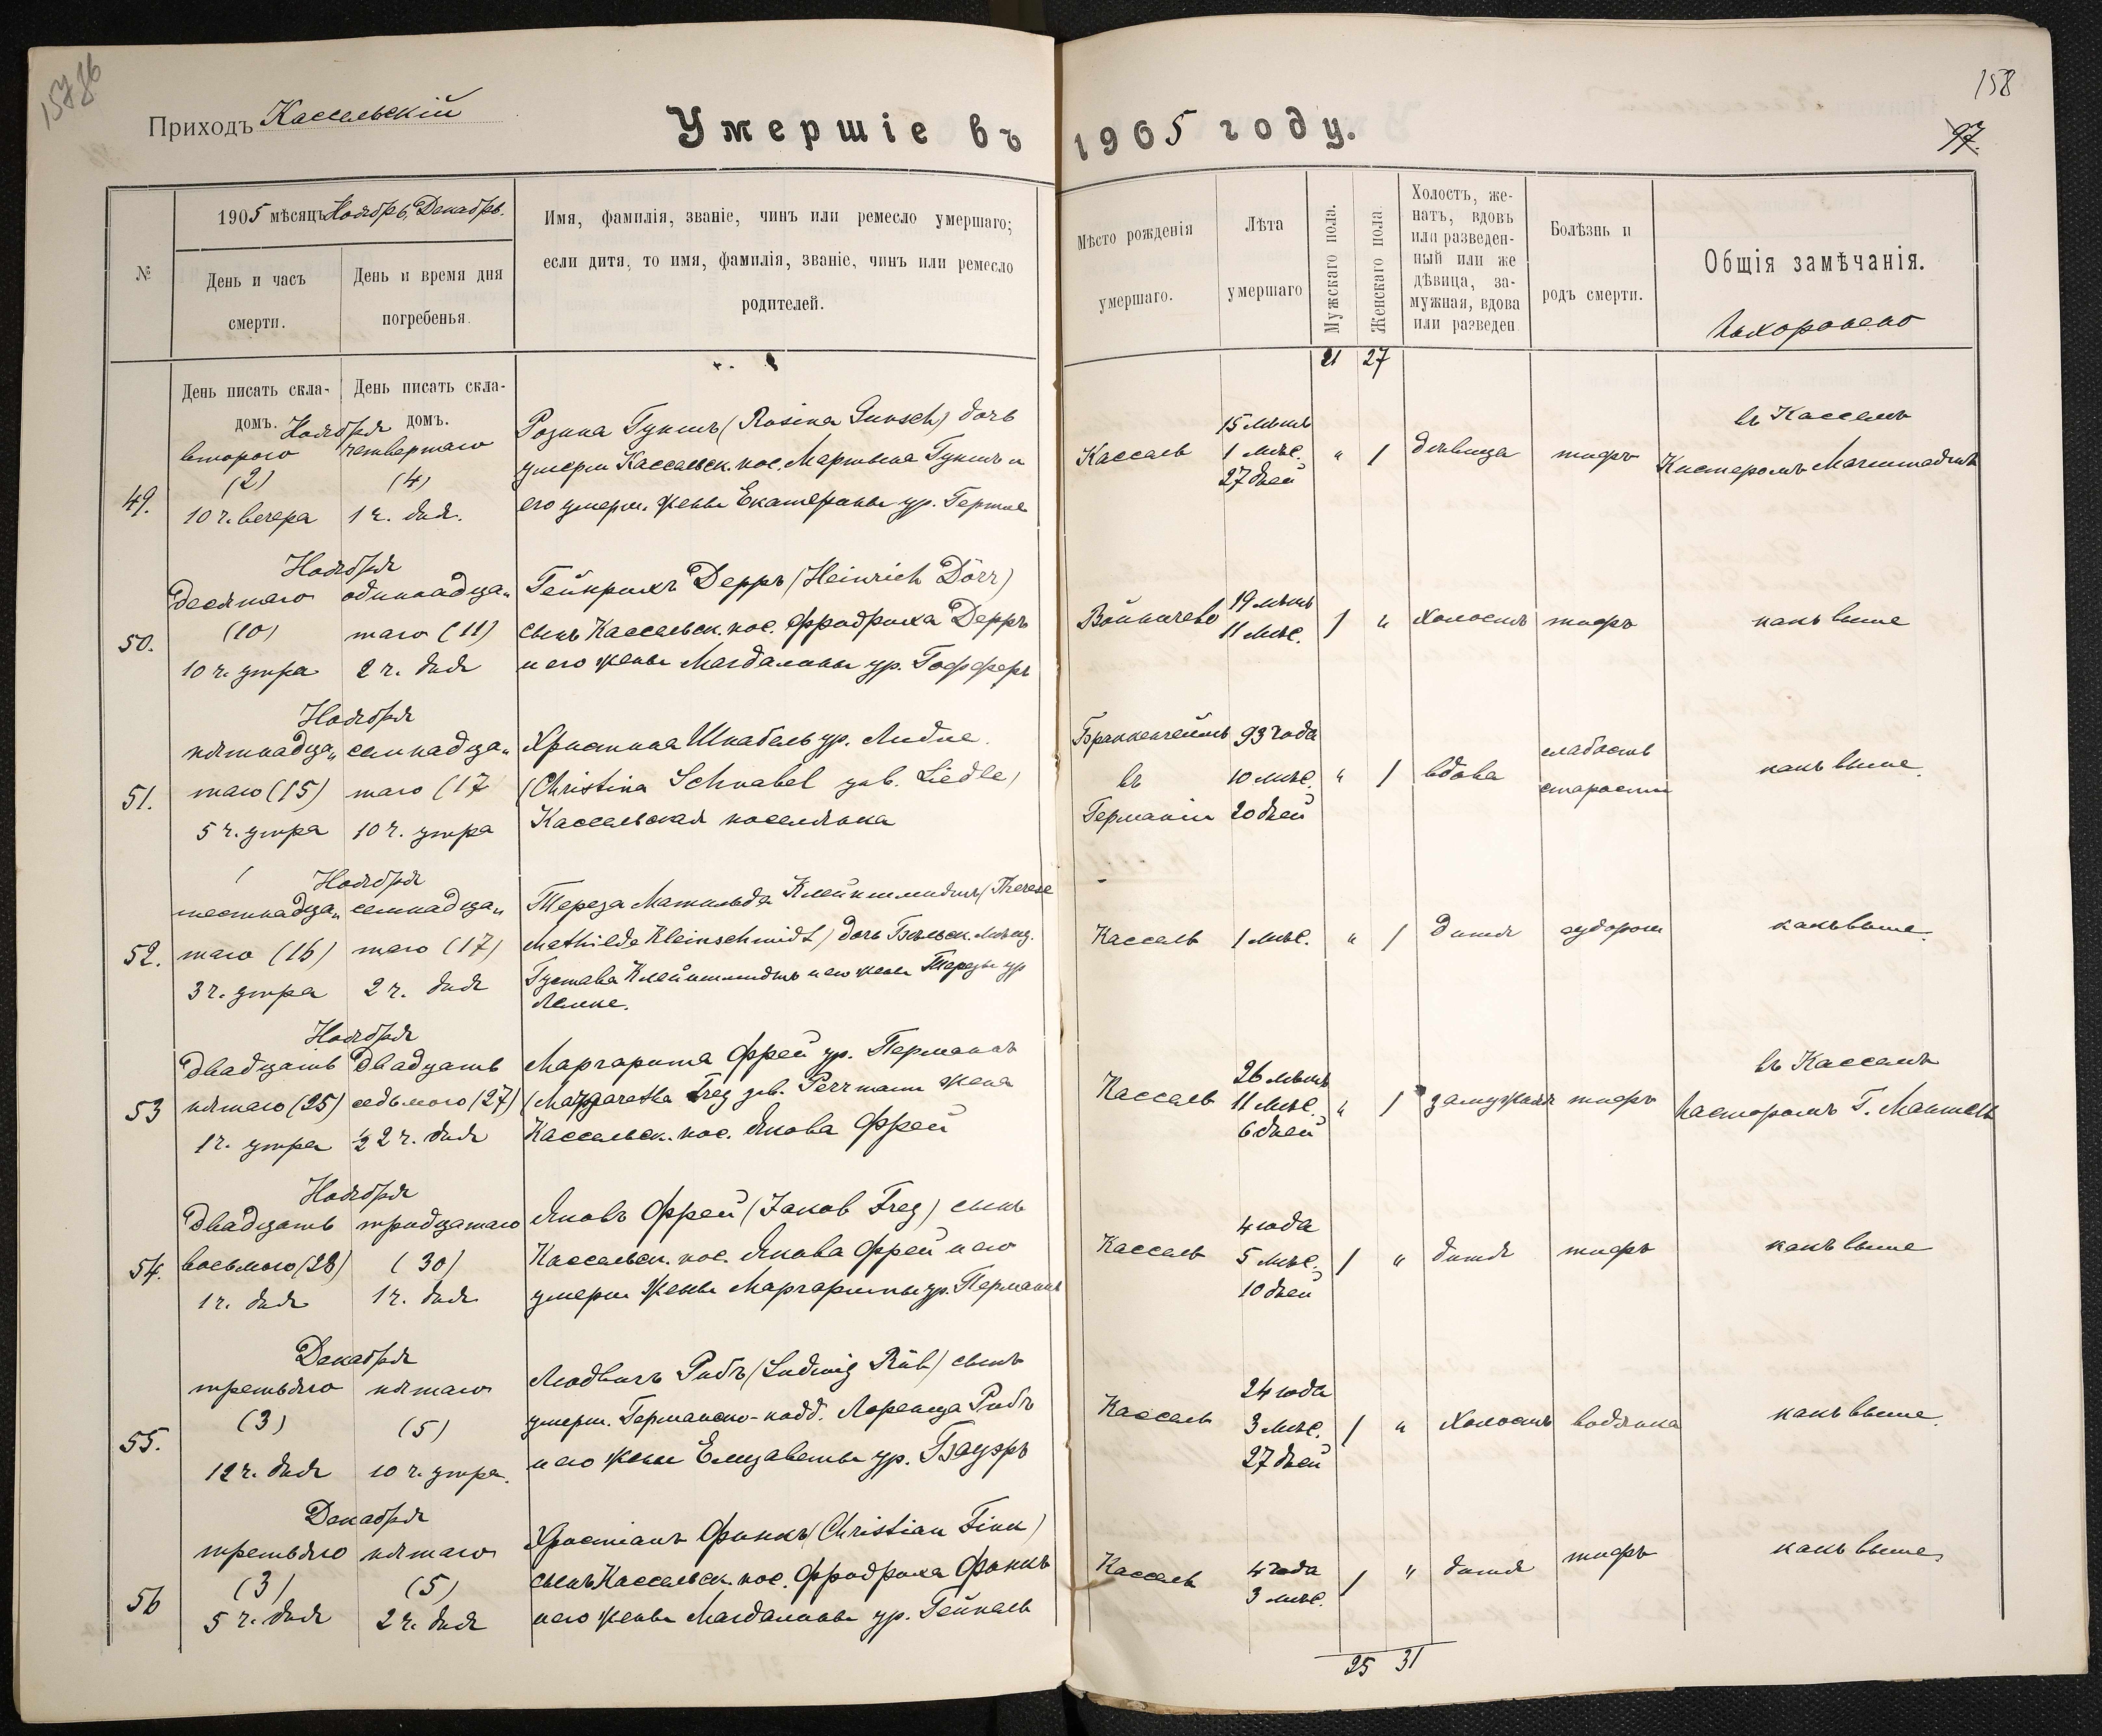 Приходъ Кассельскій
Умершіе въ 1905 году.
158
97.
№
1905 мѣсяцъ Ноябрь, Декабрь.
День и часъ смерти.
День и время дня погребенья.
Имя, фамилія, званіе, чинъ или ремесло умершаго;
если дитя, то имя, фамилія, званіе, чинъ или ремесло
родителей.
Мѣсто рожденія
умершаго.
Лѣта
умершаго
Мужскаго пола.
Женскаго пола
Холостъ, же-
натъ, вдовъ
или разведен-
ный или же
дѣвица, за-
мужная, вдова
или разведен
Болѣзнь и
родъ смерти.
Общія замѣчанія.
Похоронено
21 27
День писать скла-
домъ.
День писать скла-
домъ.
49.
Ноября
второго
(2)
10 ч. вечера
четвертаго
(4)
1 ч. дня.
Розина Гуншъ (Rosina Gunsch) дочь
умерш. Кассельск. пос. Мартына Гуншъ и
его умерш. жены Екатерины ур.
Кассель
15 лѣтъ
1 мѣс.
27 дней
" 1
дѣвица
тифъ
въ Касселѣ
Кистеромъ
50.
Ноября
десятаго
(10)
10 ч. утра
одиннадца„
таго (11)
2 ч. дня
Гейнрихъ Дерръ (Heinrich Dörr)
сынъ Кассельск. пос. Фридриха Дерръ
и его жены Магдалины ур. Гофферъ
19 лѣтъ
11 мѣс.
1 "
холостъ
тифъ
какъ выше
51.
Ноября
пятнадца„
таго (15)
5 ч. утра
семнадца„
таго (17
10 ч. утра
Христина Шнабель ур. Лидле
(Christina Schnabel geb. Liedle)
Кассельская поселянка
въ
Германіи
93 года
10 мѣс.
20 дней
" 1
вдова
слабость
старости
какъ выше.
52.
Ноября
шестнадца„
таго (16)
3 ч. утра
семнадца„
таго (17)
2 ч. дня
Тереза Матильда Клейншмидтъ (Therese
Mathilde Kleinschmidt) дочь
Густава Клейншмидтъ и его жены Терезы ур
Лемке.
Кассель
1 мѣс.
" 1
дитя
судороги
какъ выше.
53
Ноября
двадцать
пятаго (25)
1 ч. утра
двадцать
седьмого (27)
½ 2 ч. дня
Маргарита Фрей ур. Перманнъ
(Margaretha Frey geb. Perrmann жена
Кассельск. пос. Якова Фрей
Кассель
26 лѣтъ
11 мѣс.
6 дней
" 1
замужняя
тифъ
въ Касселѣ
Пасторомъ Г.
54.
Ноября
двадцать
восьмого (28)
1 ч. дня
тридцатаго
(30)
1 ч. дня
Яковъ Фрей (Jakob Frey) сынъ
Кассельск. пос. Якова Фрей и его
умерш. жены Маргариты ур. Перманнъ
Кассель
4 года
5 мѣс.
10 дней
1 "
дитя
тифъ
какъ выше
55.
Декабря
третьяго
(3)
12 ч. дня
пятаго
(5)
10 ч. утра.
Людвигъ Рибъ (Ludwig Rüb) сынъ
умерш. Германско-подд. Лоренца Рибъ
и его жены Елизаветы ур. Бауэръ
Кассель
24 года
3 мѣс.
27 дней
1 "
холостъ
водянка
какъ выше.
56
Декабря
третьяго
(3)
5 ч. дня
пятаго
(5)
2 ч. дня
Христіанъ Финкъ (Christian Fink)
сынъ Кассельск. пос. Фридриха Финкъ
и его жены Магдалины ур. Гейнель
Кассель
4 года
3 мѣс.
1 "
дитя
тифъ
какъ выше
25 31